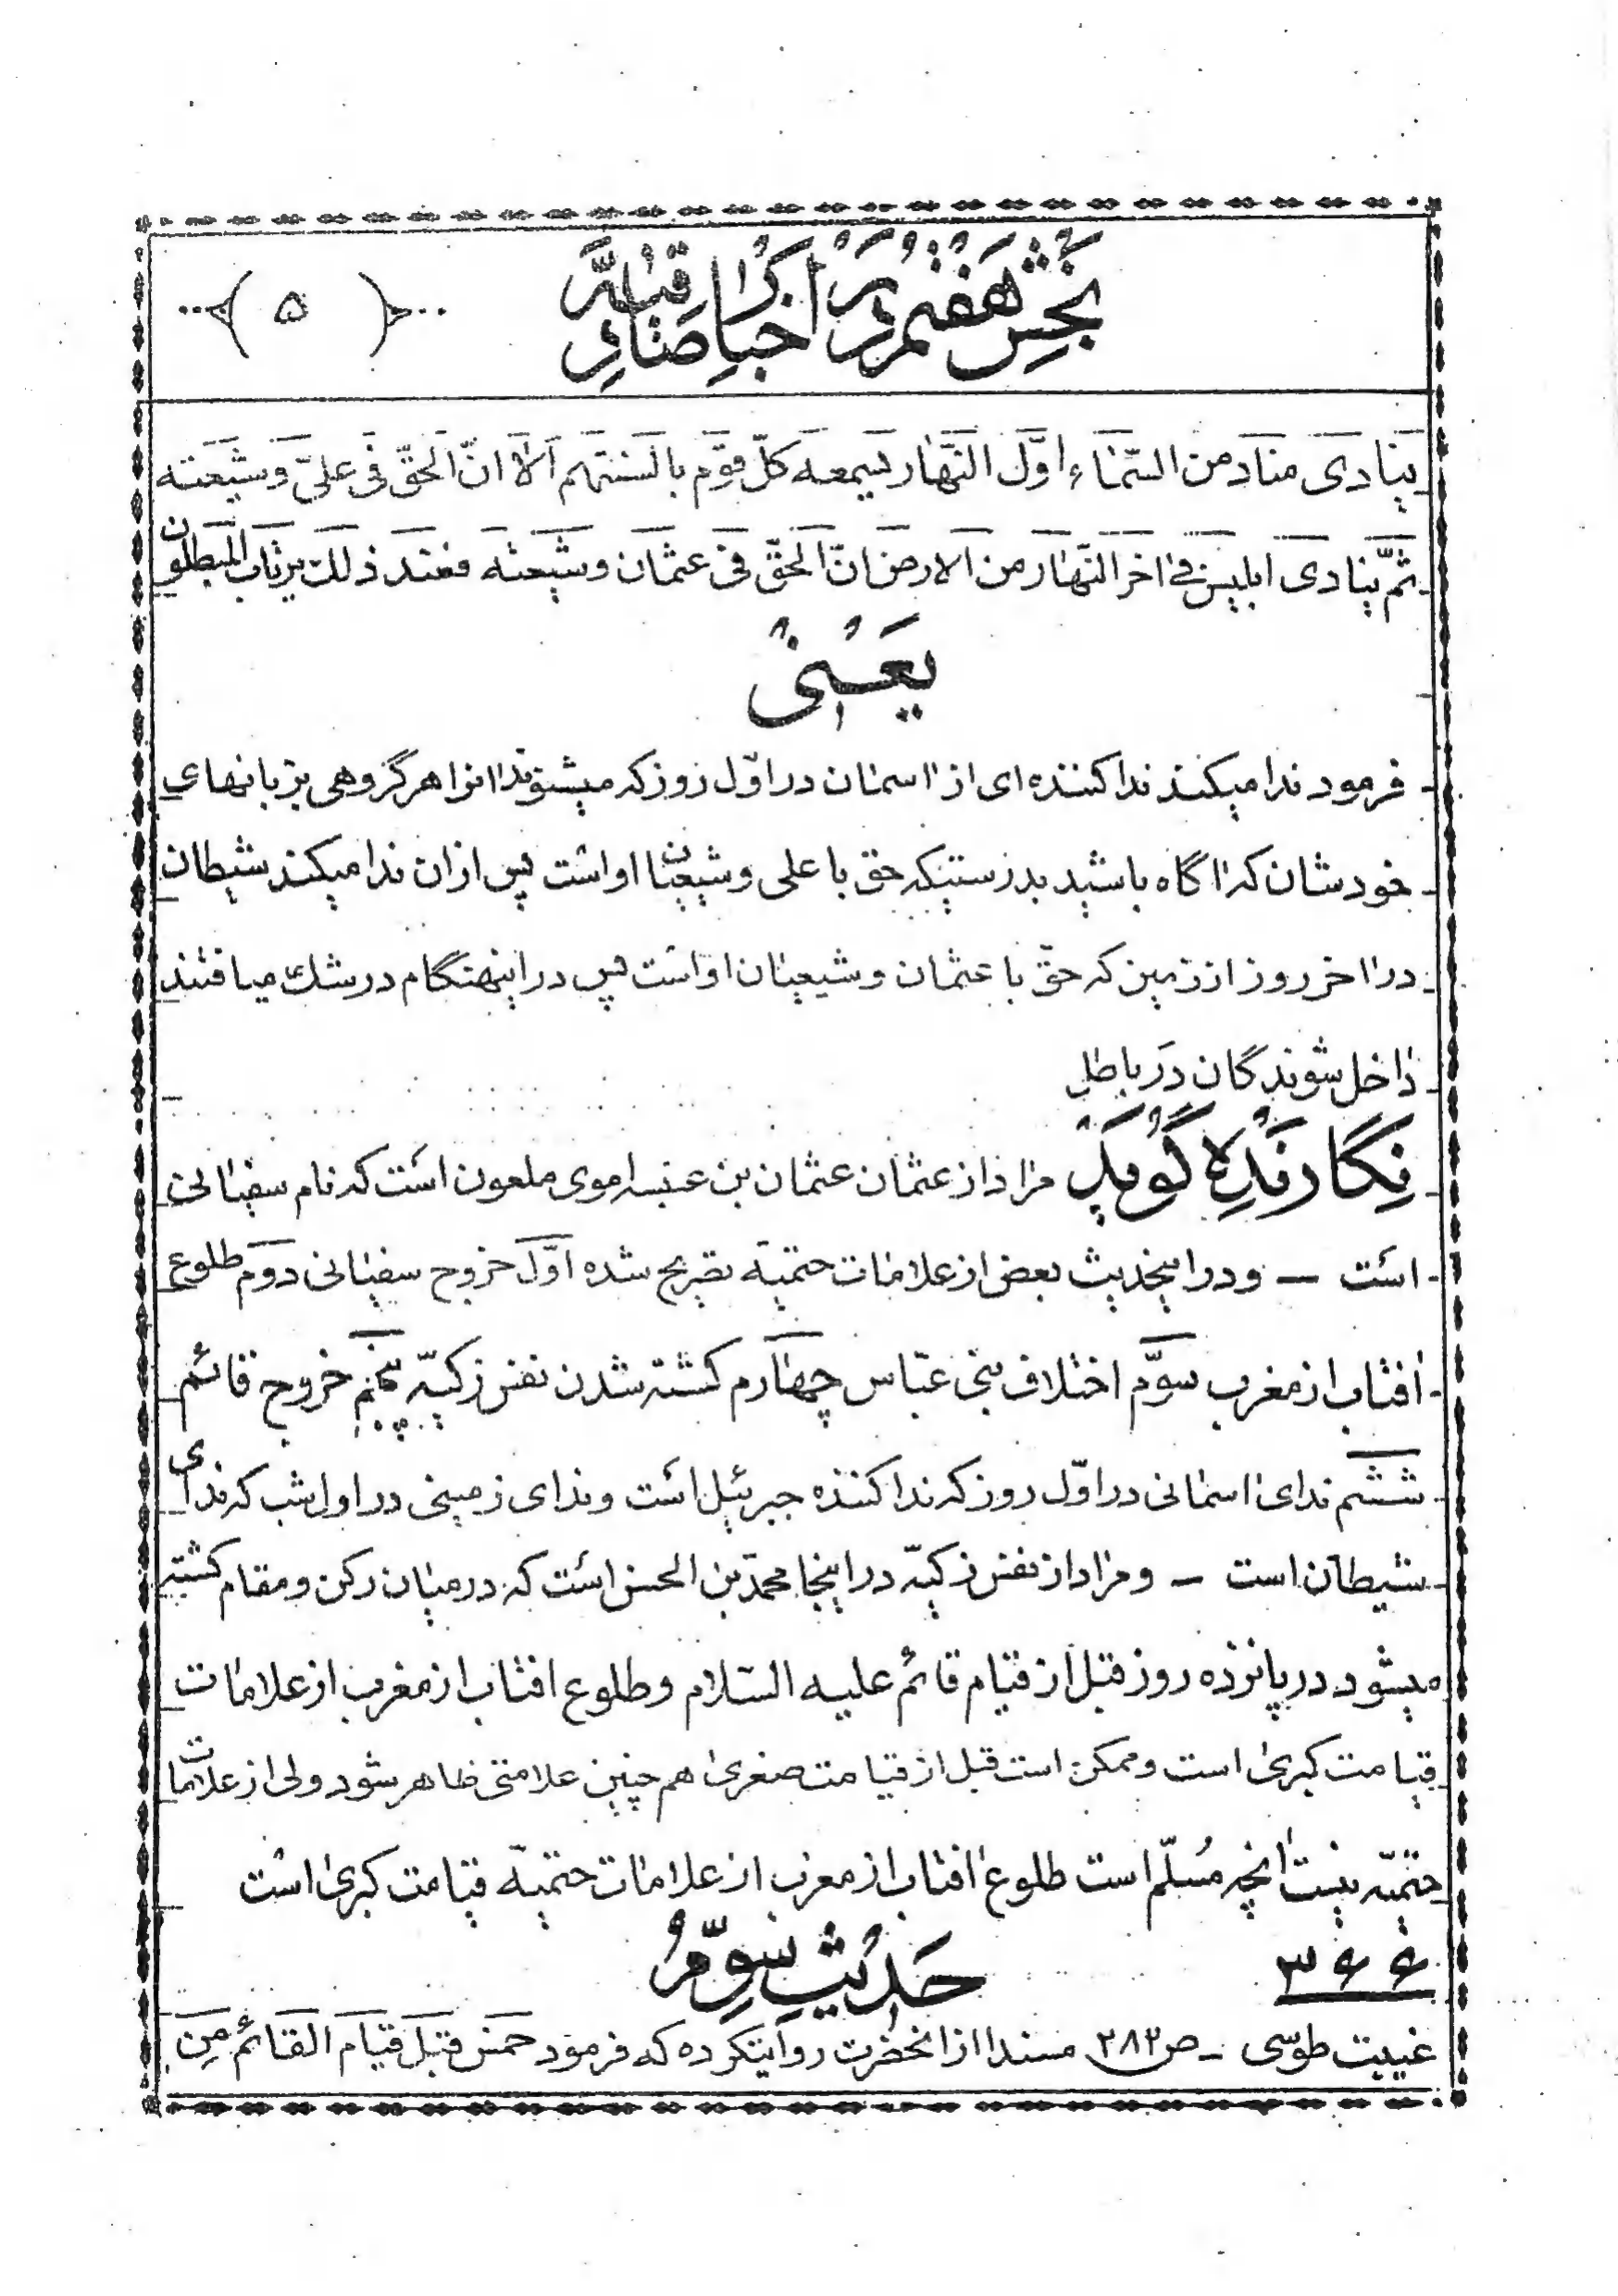 بخش هفتم در اخبار صادقیه
﴿ ۵ ﴾
ینادی مناد من السّماء اوّل النّهار یسمعه کلّ قوم بالسنتهم الا انّ الحقّ فی علیّ و شیعته
ثمّ ینادی ابلیس فی اخر النّهار من الارض انّ الحقّ فی عثمان و شیعته فعند ذلک یرتاب المبطلون
یعنی
فرمود ندا میکند نداکننده ای از اسمان در اوّل روز که میشنوند انرا هر گروهی بزبانهای
خودشان که اگاه باشید بدرستیکه حق با علی و شیعیان او است پس از ان ندا میکند شیطان
در اخر روز از زمین که حقّ با عثمان و شیعیان او است پس در اینهنگام در شک میافتند
داخل شوندگان در باطل
نگارنده گوید مراد از عثمان عثمان بن عنبسه اموی ملعون است که نام سفیانی
است — و در اینحدیث بعض از علامات حتمیّه تصریح شده اوّل خروج سفیانی دوّم طلوع
افتاب از مغرب سوّم اختلاف بنی عبّاس چهارم کشته شدن نفس زکیّه پنجم خروج قائم
ششم ندای اسمانی در اوّل روز که نداکننده جبرئیل است و ندای زمینی در اول شب که ندای
شیطان است — و مراد از نفس زکیّه در اینجا محمّد بن الحسن است که در میان رکن و مقام کشته
میشود در پانزده روز قبل از قیام قائم علیه السّلام و طلوع افتاب از مغرب از علامات
قیامت کبری است و ممکن است قبل از قیامت صغری هم چنین علامتی ظاهر شود ولی از علامات
حتمیّه نیست انچه مُسلّم است طلوع افتاب از مغرب از علامات حتمیّه قیامت کبری است
۳۶۶
حَدیثِ سِوّمُ
غیبت طوسی — ص ۲۸۲ مسندا از انحضرت روایتکرده که فرمود خمس قبل قیام القائم مِنَ